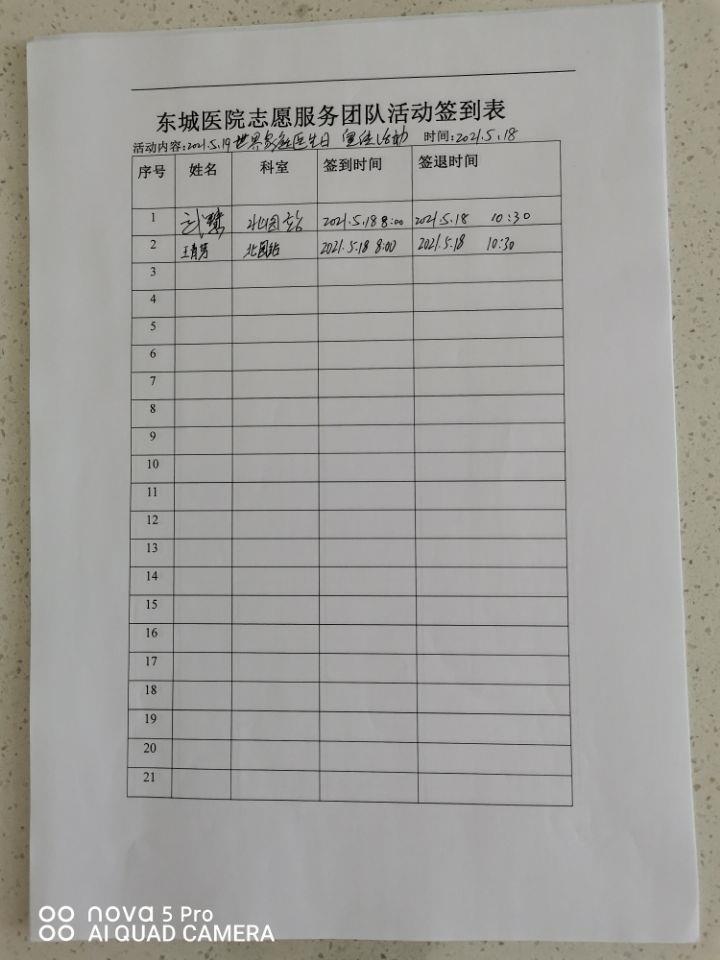 东城医院志愿服务团队活动签到表
活动内容:2021.5.19世界家庭医生日 宣传活动 时间:2021.5.18
序号 姓名 科室 签到时间 签退时间
1 北园站 2021.5.18 8:00 2021.5.18 10:30
2 王青芳 北园站 2021.5.18 8:00 2021.5.18 10:30
3
4
5
6
7
8
9
10
11
12
13
14
15
16
17
18
19
20
21
nova 5 Pro
AI QUAD CAMERA